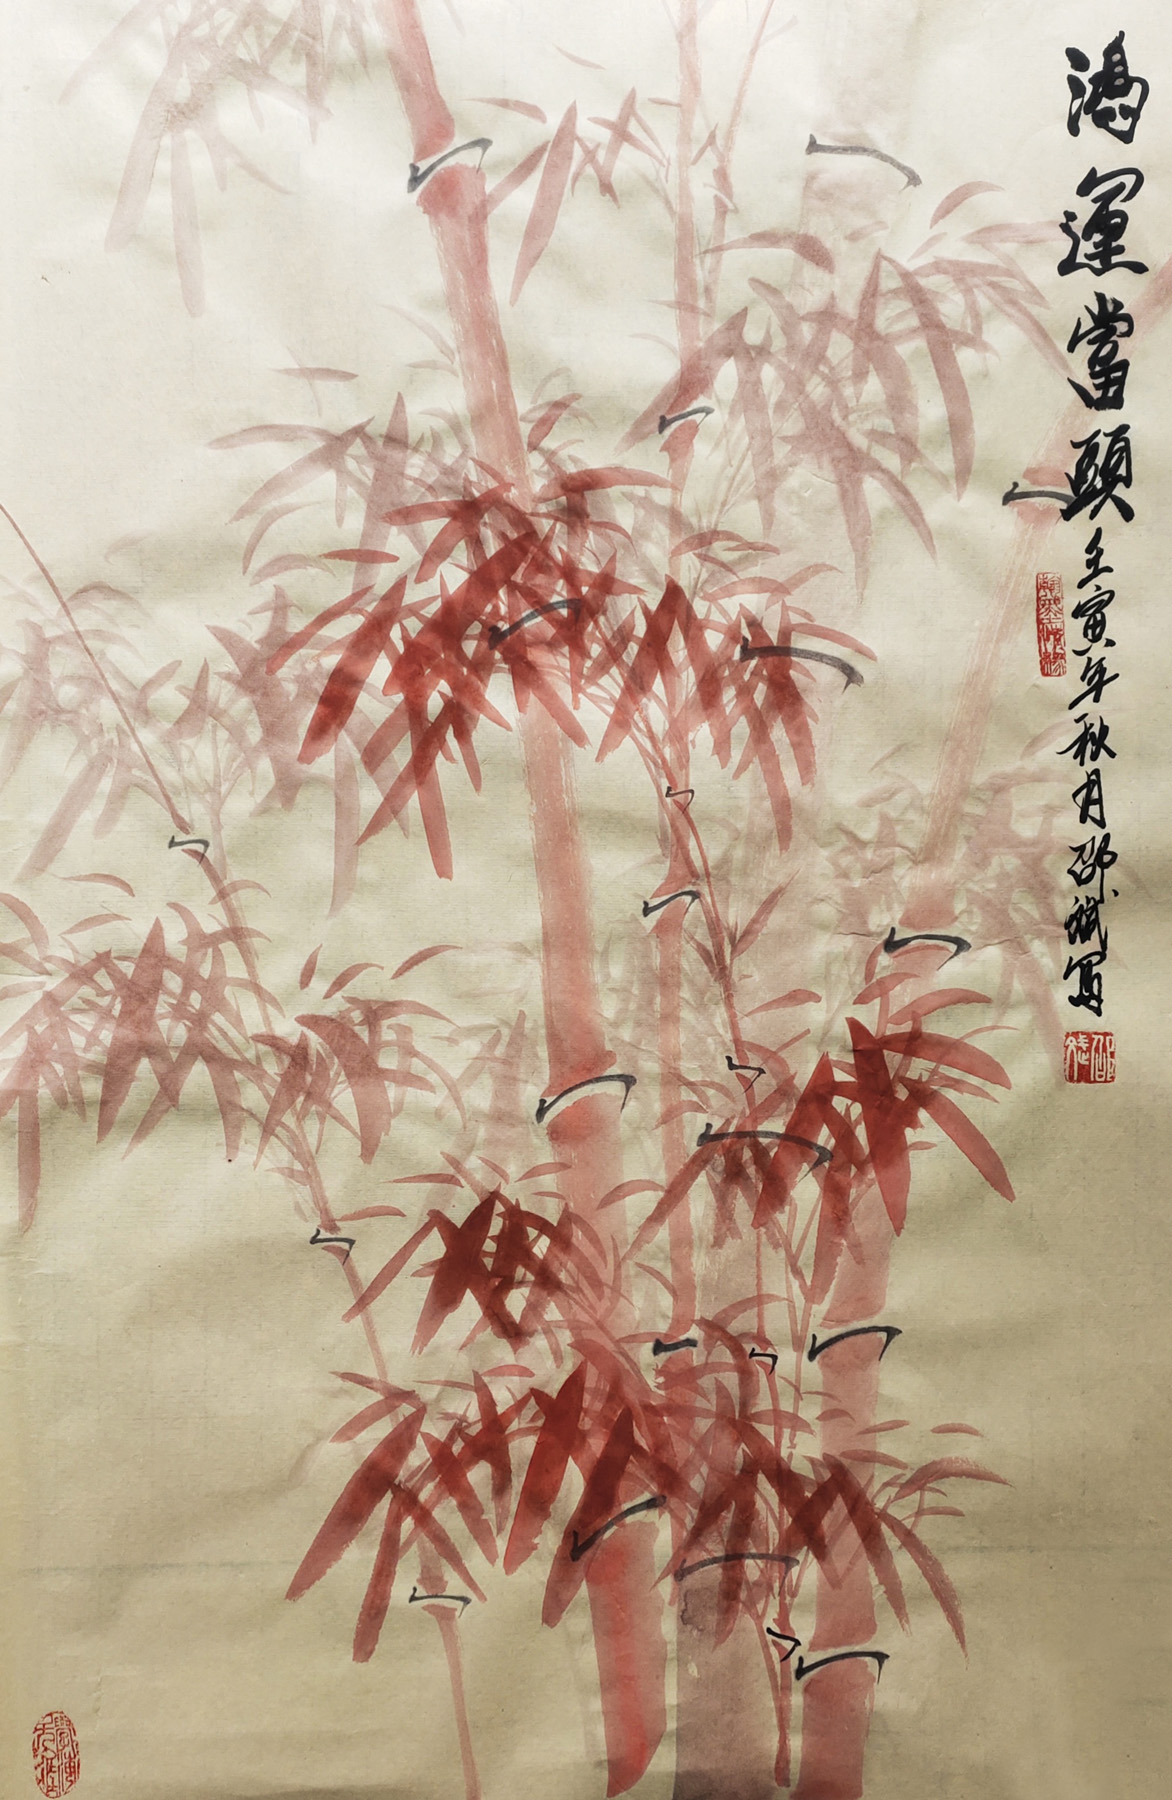 鴻運當頭壬寅年秋月邵斌寫